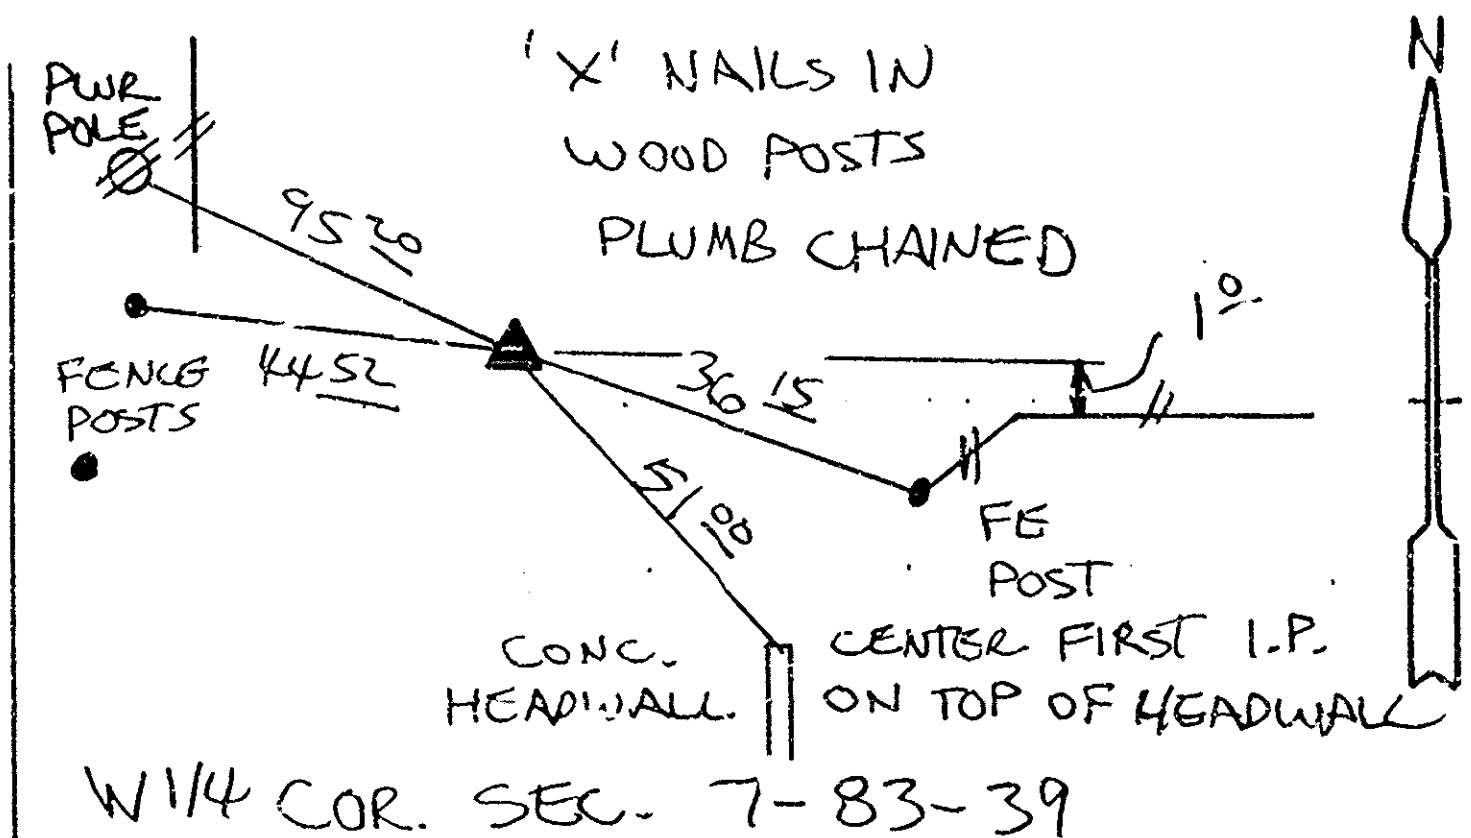 N
'X' NAILS IN
WOOD POSTS
PLUMB CHAINED
PWR
POLE
95 20
1 0
FENCE
POSTS
44 52
36 15
51 00
FE
POST
CONC.
HEADWALL
CENTER FIRST I.P.
ON TOP OF HEADWALL
W 1/4 COR. SEC. 7-83-39